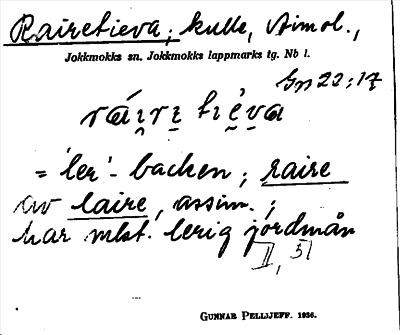 Rairetieva; kulle, Aimol.,
Jokkmokks sn. Jokkmokks lappmarks tg. Nb l.
Gp 22; 17
ráı̯rᴇ tiḙva
= 'ler'- backen; raire
av laire, assim.;
har mkt. lerig jordmån
II, 51
GUNNAR PELLIJEFF. 1936.